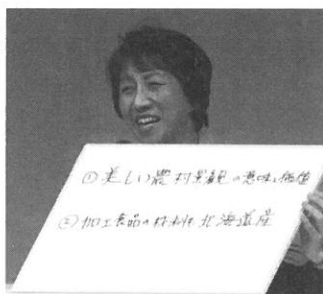 ①美しい農村景観の意味、価値
②加工食品の材料 北海道産